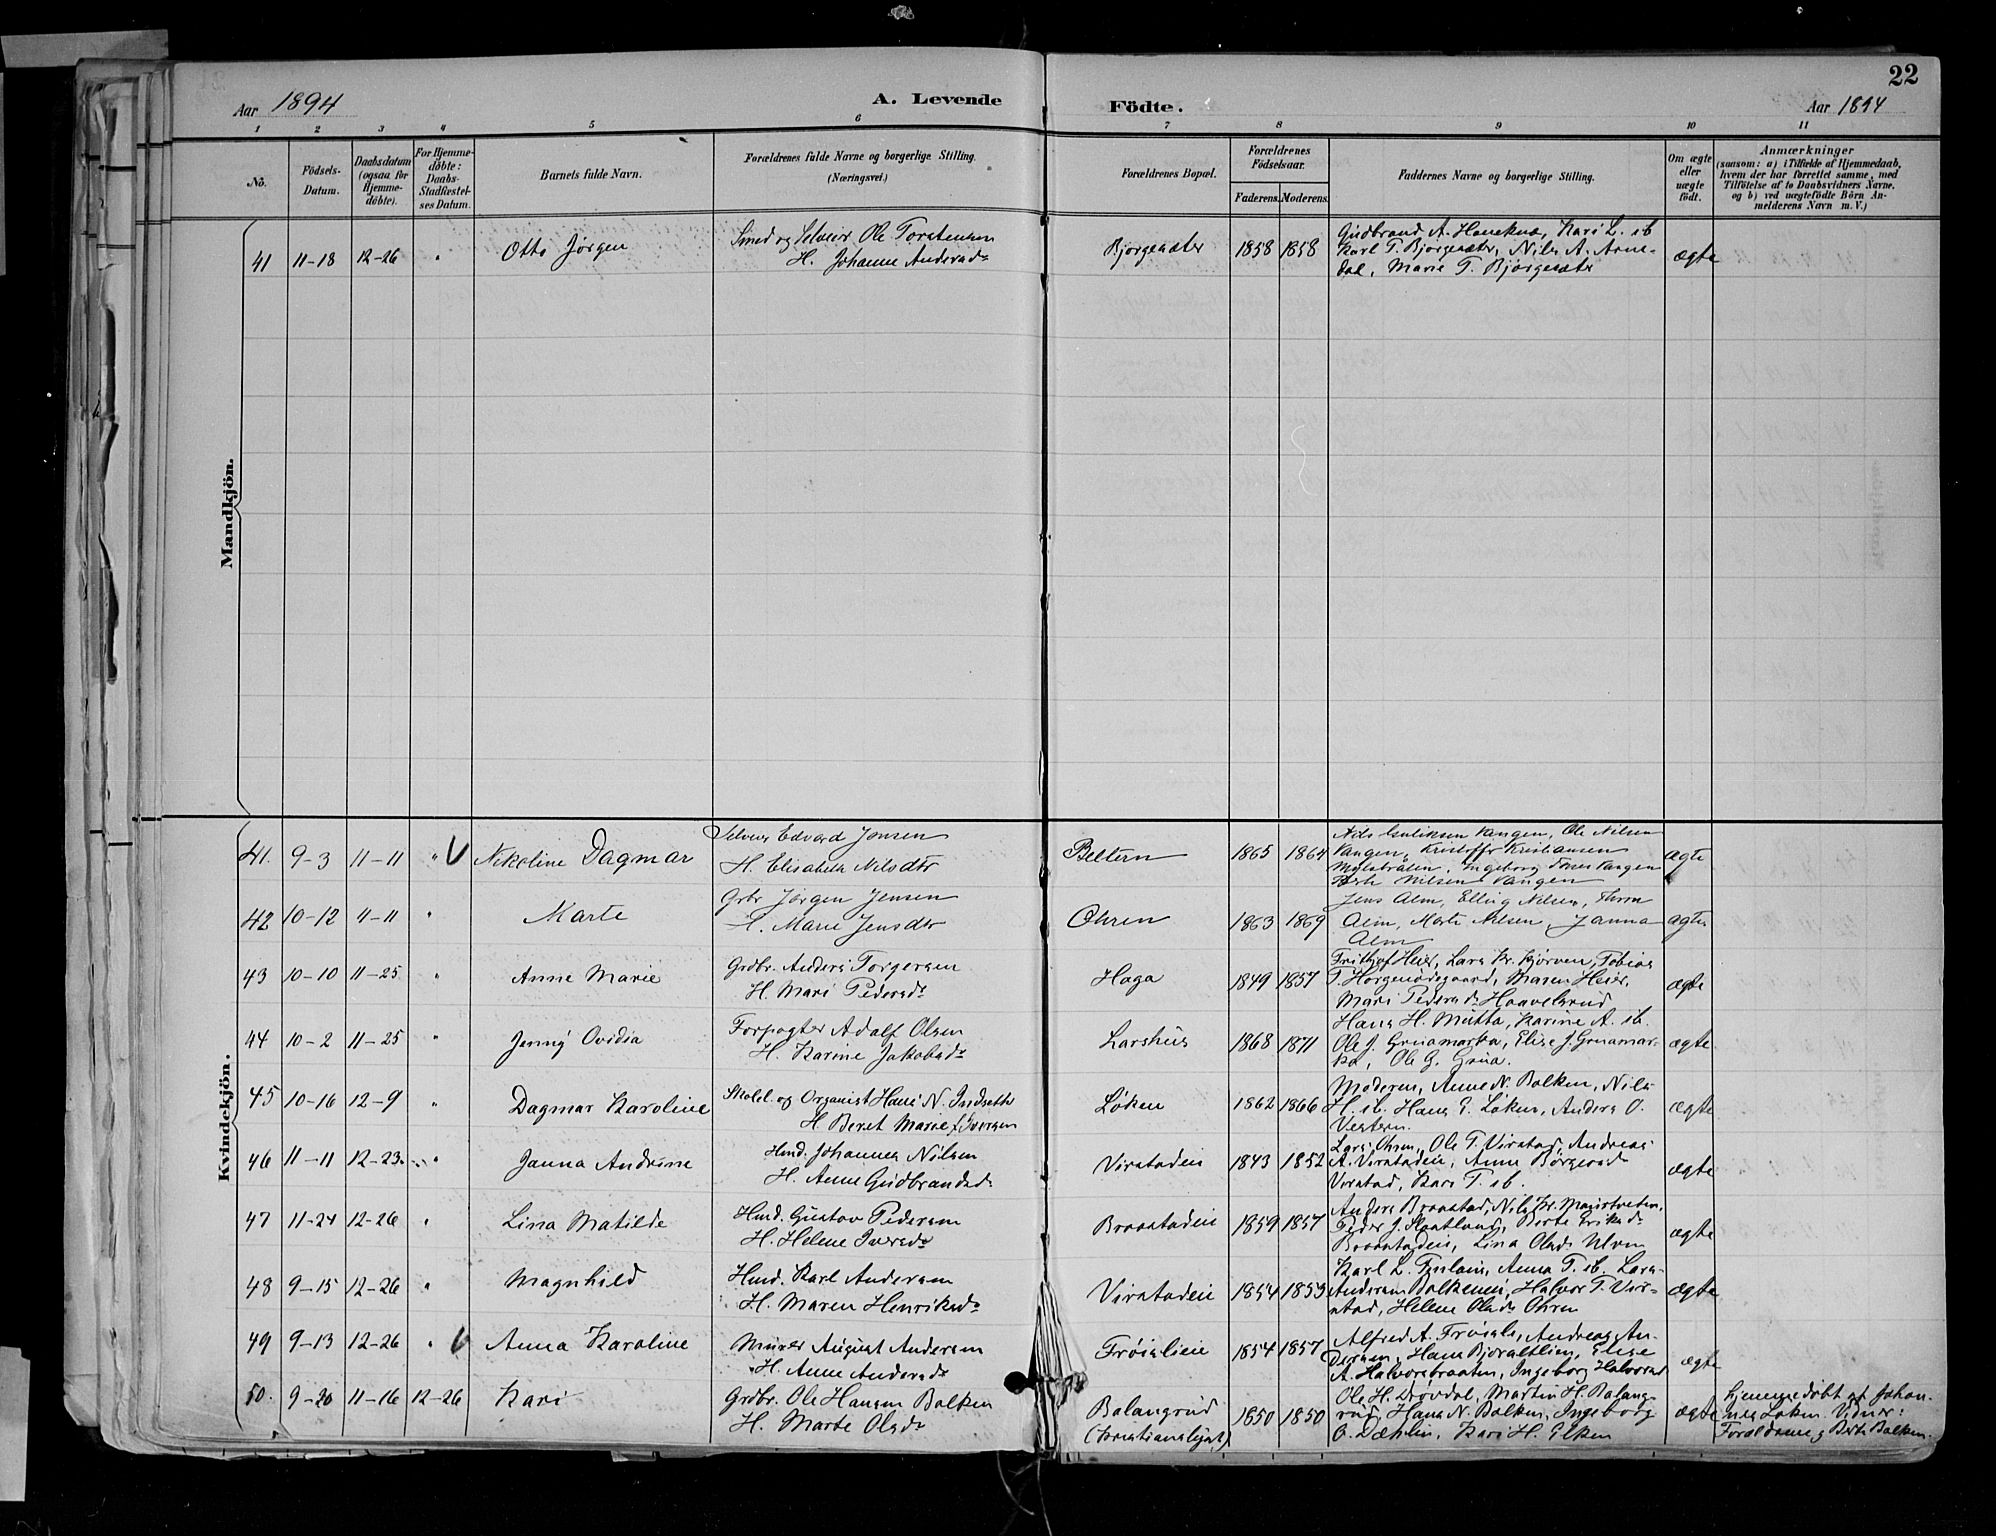 22
Aar 1894
A. Levende
Födte.
Aar 1894
1 2 3 4 5 6 7 8 9 10 11
No.
Födsels-
Datum.
Daabsdatum
(ogsaa for
Hjemme-
döbte).
For Hjemme-
döbte:
Daabs-
Stadfæstel-
ses Datum.
Barnets fulde Navn.
Forældrenes fulde Navne og borgerlige Stilling.
(Næringsvei.)
Forældrenes Bopæl.
Forældrenes
Födselsaar.
Faderens. Moderens.
Faddernes Navne og borgerlige Stilling.
Om ægte
eller
uægte
födt.
Anmærkninger
(saasom: a) i Tilfælde af Hjemmedaab,
hvem der har forrettet samme, med
Tilföielse af to Daabsvidners Navne.
og b) ved uægtefödte Börn An-
melderens Navn m. V.)
Mandkjön.
41 11-18 12-26 " Otto Jørgen
Smed og Selveier Ole Torstensen
H. Johanne Andersdr
Bjørgesæter 1858 1858
Gudbrand A. Haneknæ, Kari L. ib
Karl T. Bjørgesæter, Nils A. Arne-
dal, Marie T. Bjørgesæter
ægte
Kvindekjön.
41. 9-3 11-11 " V Nikoline Dagmar
Selveier Edvard Jensen
H. Elisabeth Nilsdtr
Beltern 1865 1864
Vangen, Ole Nilsen
Vangen, Kristoffer Kristiansen
Ingeborg Vangen
Nilsen Vangen
ægte
42 10-12 11-11 " Marte
Grbr Jørgen Jensen
H. Marie Jensdtr
Ohren 1863 1869
Jens Alm, Elling Nilsen,
Alm, Marte Nilsen, Janna
Alm
ægte
43 10-10 11-25 " Anne Marie
Grdbr. Anders Torgersen
H. Mari Pedersdr
Haga 1849 1857
Frithjof Heier, Lars Kr. Kjørven, Tobias
T. Horgenødegaard, Maren Heier,
Mari Pedersdr Haavelsrud
ægte
44 10-2 11-25 " Jenny Ovidia
Forpagter Adolf Olsen
H. Karine Jakobsdr
Larshus 1868 1871
Hans H. Mutta, Karine A. ib.
Ole J. Gruamarka, Elise J. Gruamar-
ka, Ole G. Grua.
ægte
45 10-16 12-9 " Dagmar Karoline
Skolel. og Organist Hans N. Indseth
H. Beret Marie f. Iversen
Løken 1862 1866
Moderen, Anne N. Balken, Nils
H. ib. Hans E. Løken, Anders O.
Vestern.
ægte
46 11-11 12-23 " Janna Andrine
Hmd. Johannes Nilsen
H. Anne Gudbrandsdr
Virstadeie 1843 1852
Lars Ohren, Ole T. Virstad, Andreas
A. Virstadeie, Anne Børgersdr
Virstad, Kari T. ib.
ægte
47 11-24 12-26 " Lina Matilde
Hmd. Gustav Pedersen
H. Helene Iversdr
Braastadeie 1859 1857
Anders Braastad, Nils Kr.
Peder J. Berte Eriksdr
Braastadeie, Lina Olsdr Ulven
ægte
48 9-15 12-26 " Magnhild
Hmd. Karl Andersen
H. Maren Henriksdr
Virstadeie 1854 1853
Karl L. Anna T. ib. Lars
Andersen Balkeneie, Halvor T. Vir-
stad, Helene Olsdr Ohren
ægte
49 9-13 12-26 " V Anna Karoline
Murer August Andersen
H. Anne Andersdr
Frøislieie 1854 1857
Alfred A. Frøisli, Andreas An-
dersen, Hans Bjøraltlien, Elise
A. Halvorsbraaten, Ingeborg Halvorsd
ægte
50. 9-20 11-16 12-26 Kari
Grdbr. Ole Hansen Balken
H. Marte Olsdr
Balangrud
1850 1850
Ole H. Dovdal, Martin H. Balang-
rud, Hans N. Balken, Ingeborg
O. Dæhlin, Kari H. Elken
ægte
hjemmedøbt af Johan-
nes Løken. Vidner:
Forældrene og Berte Balken.